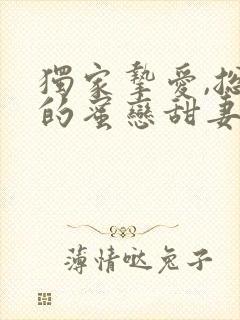 獨家摯愛,總
的蜜戀甜妻
薄情哒兔子